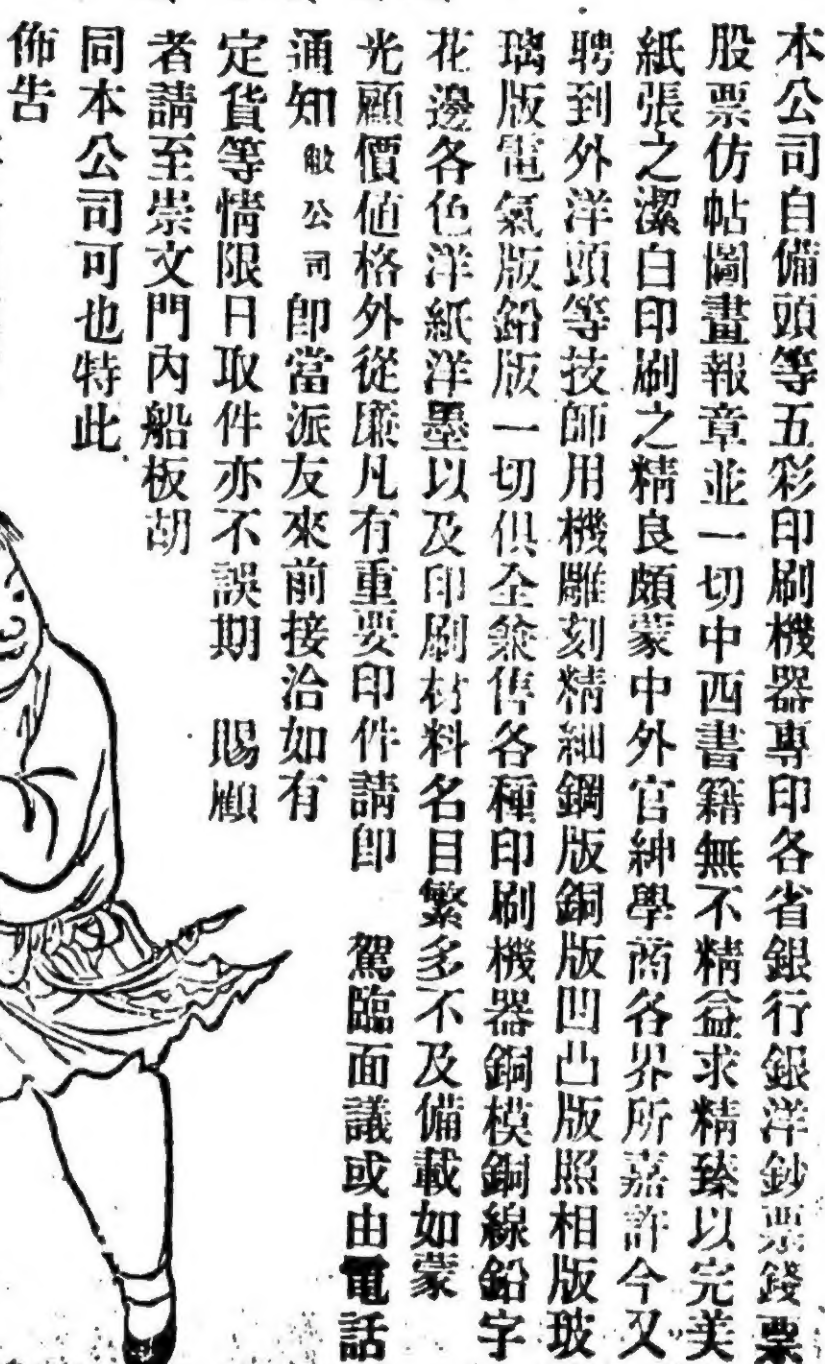 本公司自備頭等五彩印刷機器專印各省銀行銀洋鈔票錢票
股票仿帖圖畫報章並一切中西書籍無不精益求精臻以完美
紙張之潔白印刷之精良頗蒙中外官紳學商各界所嘉許今又
聘到外洋頭等技師用機雕刻精細鋼版銅版凹凸版照相版玻
璃版電氣版鉛版一切俱全兼售各種印刷機器銅模銅線鉛字
花邊各色洋紙洋墨以及印刷材料名目繁多不及備載如蒙
光顧價值格外從廉凡有重要印件請卽　駕臨面議或由電話
通知敝公司卽當派友來前接洽如有
定貨等情限日取件亦不誤期　賜顧
者請至崇文門內船板胡
同本公司可也特此
佈告